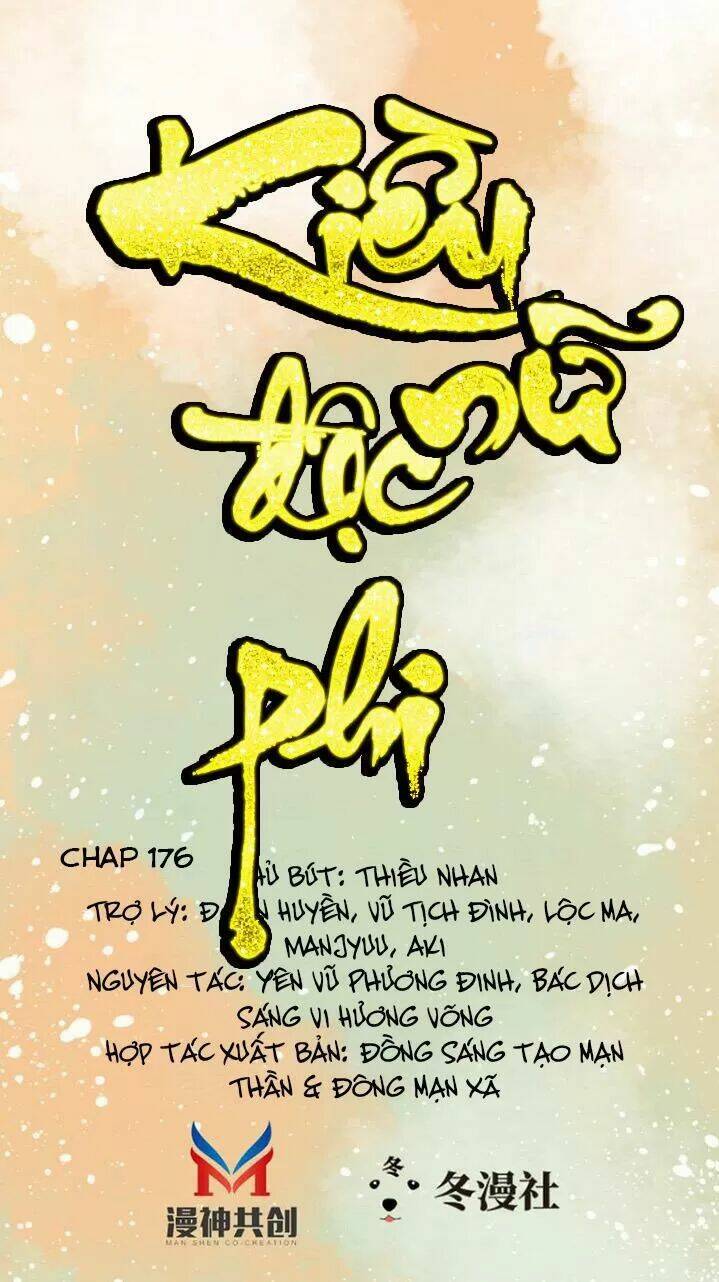 Kiều
nữ
độc
phi
CHAP 176
BÚT: THIỀU NHAN
TRỢ LÝ: HUYỀN, VŨ TỊCH ĐÌNH, LỘC MA,
MANJYUU, AKI
NGUYÊN TÁC: YÊN VŨ PHƯƠNG ĐINH, BÁC DỊCH
SÁNG VI HƯƠNG VÕNG
HỢP TÁC XUẤT BẢN: ĐỒNG SÁNG TẠO MẠN
THẦN & ĐÔNG MẠN XÃ
冬
冬漫社
漫神共创
MAN SHEN CO-CREATION